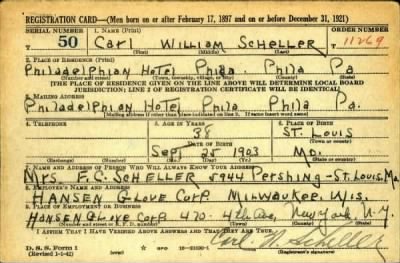 REGISTRATION CARD—(Men born on or after February 17, 1897 and on or before December 31, 1921)
SERIAL NUMBER 1. NAME (Print) ORDER NUMBER
50 Carl WILLIAM SCHELLER 11269
(First) (Middle) (Last)
2. PLACE OF RESIDENCE (Print)
Philadelphian Hotel Phila Phila Pa
(Number and street) (Town, township, village, or city) (County) (State)
[THE PLACE OF RESIDENCE GIVEN ON THE LINE ABOVE WILL DETERMINE LOCAL BOARD
JURISDICTION; LINE 2 OF REGISTRATION CERTIFICATE WILL BE IDENTICAL]
3. MAILING ADDRESS
Philadelphian Hotel Phila Phila Pa.
[Mailing address if other than place indicated on line 2. If same insert word same]
4. TELEPHONE 5. AGE IN YEARS 6. PLACE OF BIRTH
38 ST. LOUIS
DATE OF BIRTH (Town or county)
Sept 25 1903 Mo.
(Exchange) (Number) (Mo.) (Day) (Yr.) (State or country)
7. NAME AND ADDRESS OF PERSON WHO WILL ALWAYS KNOW YOUR ADDRESS
Mrs. F.C. SCHELLER 5944 Pershing - ST. Louis, Mo
8. EMPLOYER'S NAME AND ADDRESS
HANSEN GLOVE CORP. MILWAUKEE, WIS.
9. PLACE OF EMPLOYMENT OR BUSINESS
HANSEN GLOVE CORP 470 - 4th Ave, New York, N.Y.
(Number and street or R. F. D. number) (Town) (County) (State)
I AFFIRM THAT I HAVE VERIFIED ABOVE ANSWERS AND THAT THEY ARE TRUE.
D. S. S. Form 1
(Revised 1-1-42) (over) GPO Carl W. Scheller
(Registrant's signature)